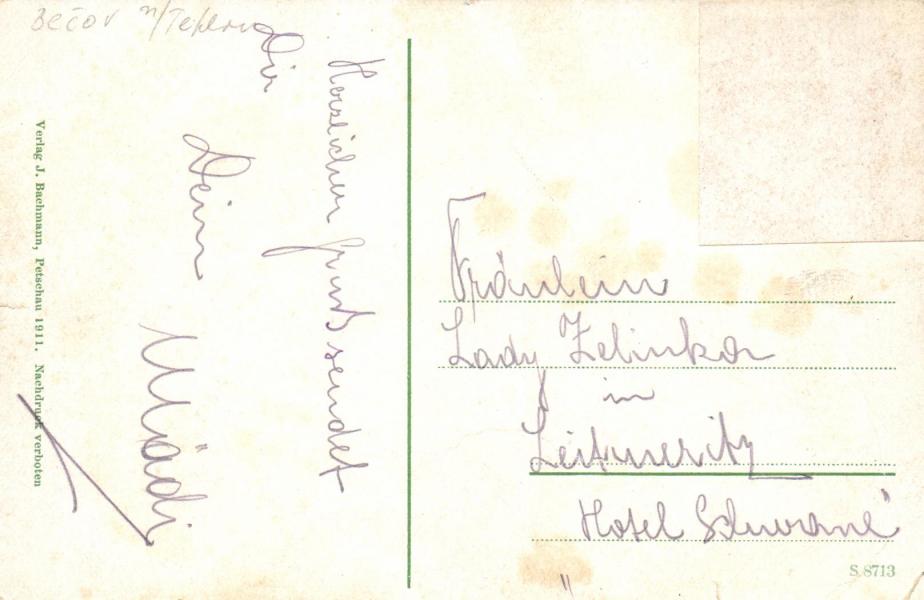 Bečov n/Teplou
Herzlichen Gruß sendet
Dir
Dein
Mädi
Verlag J. Bachmann, Petschau 1911. Nachdruck verboten
Fräulein
Lady Zelinka
in
Leitmeritz
Hotel „Schwane“
S. 8713